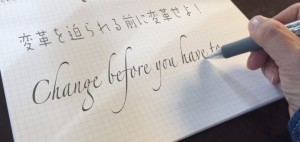 変革を迫られる前に変革せよ！
Change before you have to